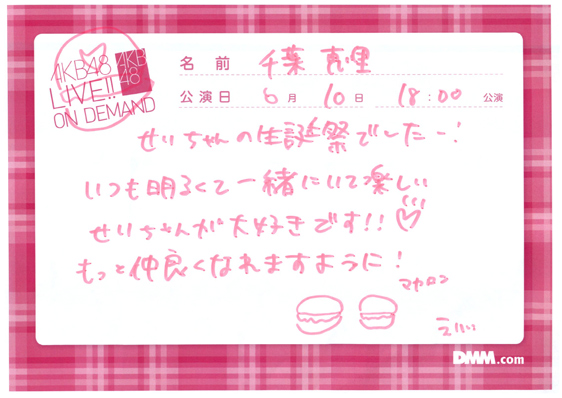 AKB48
LIVE!!
ON DEMAND
AKB
48
名前 千葉 恵里
公演日 6月 10日 18:00 公演
せいちゃんの生誕祭でしたー!
いつも明るくて一緒にいて楽しい
せいちゃんが大好きです!!
もっと仲良くなれますように!
マカロン
えりい
DMM.com